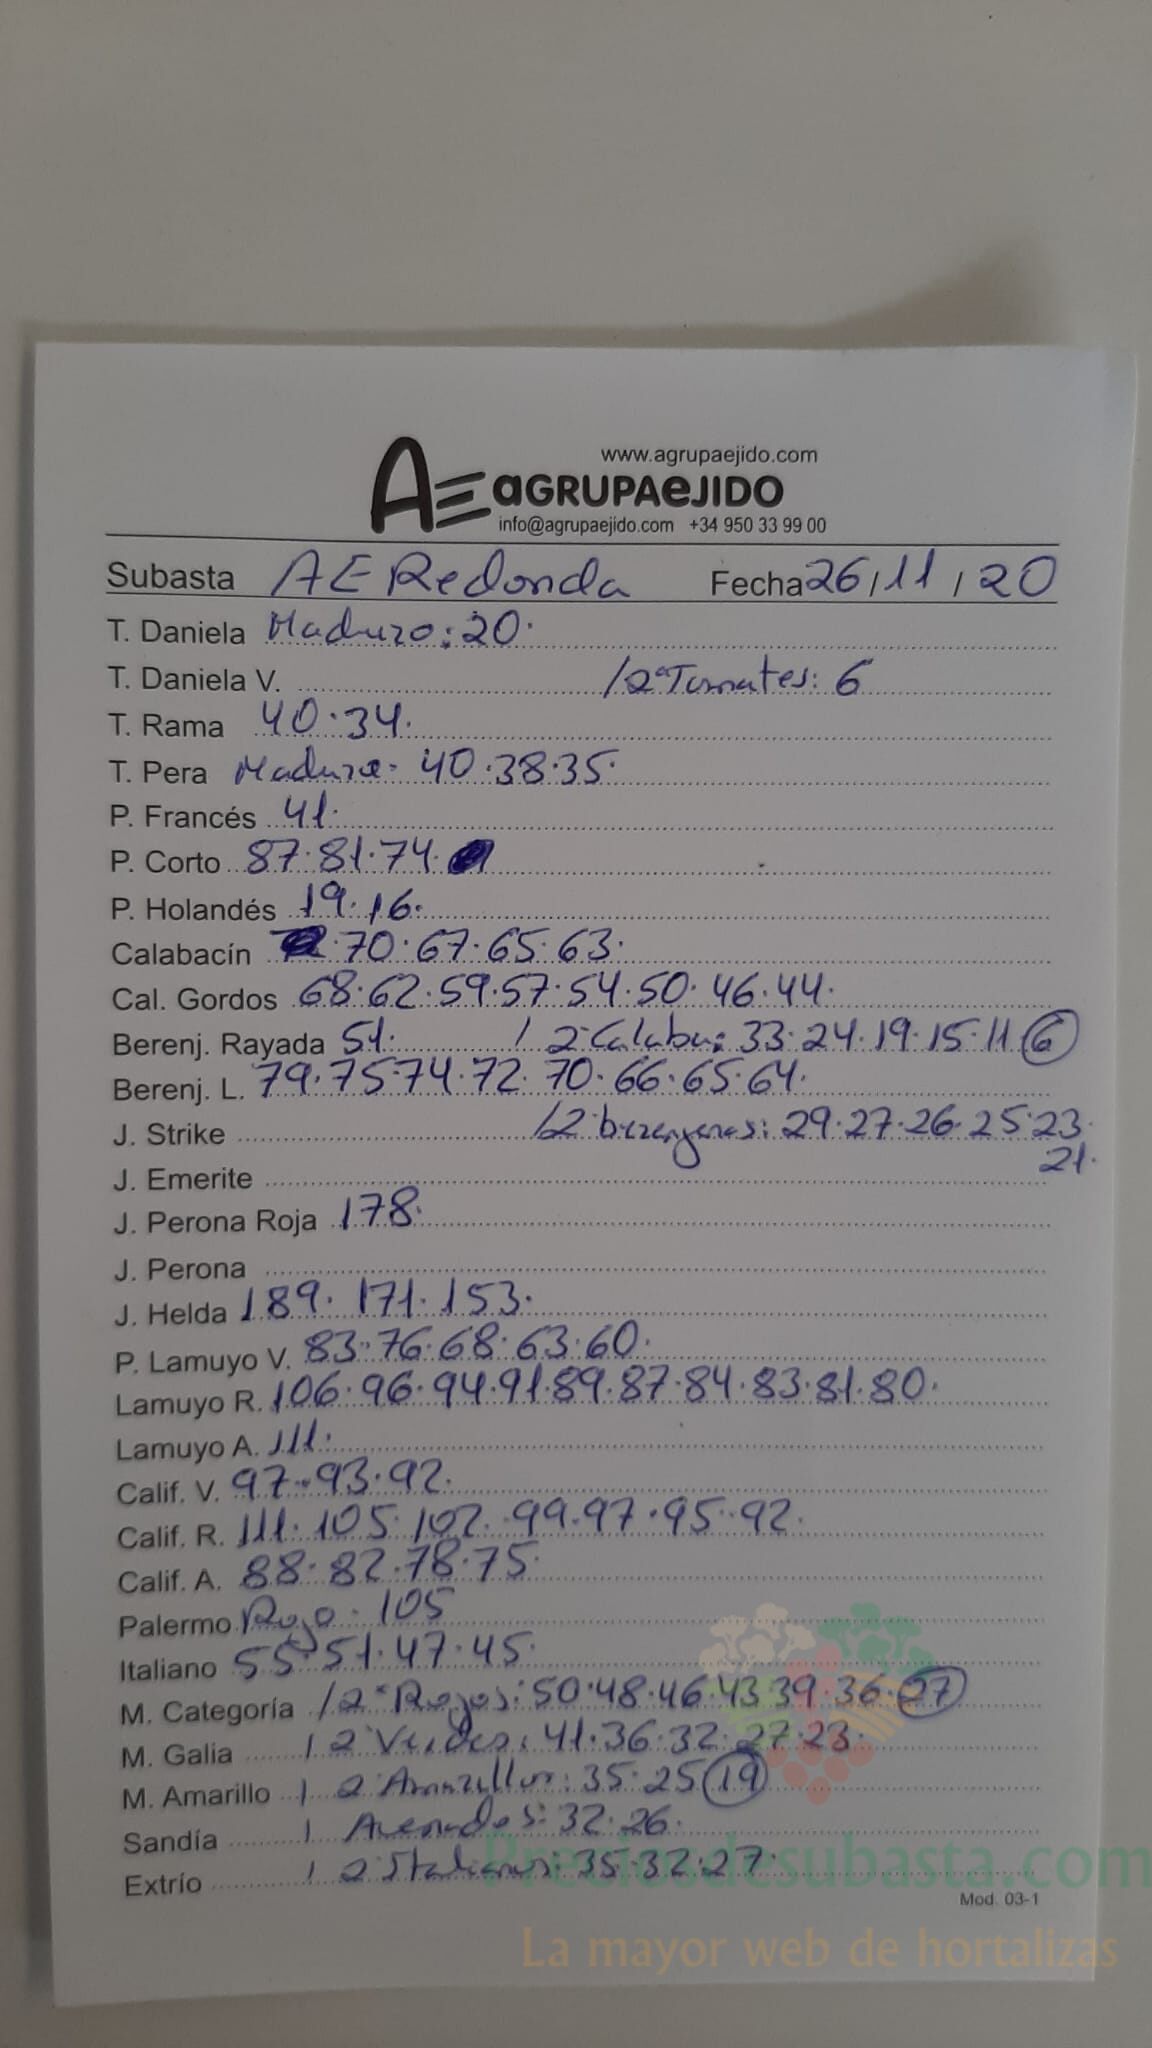 www.agrupaejido.com
AE aGRUPAeJIDO
info@agrupaejido.com +34 950 33 99 00
Subasta AE Redonda Fecha 26/11/20
T. Daniela Maduro: 20.
T. Daniela V. / 2ª Tomates: 6
T. Rama 40.34.
T. Pera Madura. 40.38.35.
P. Francés 41.
P. Corto 87.81.74.
P. Holandés 19.16.
Calabacín .70.67.65.63.
Cal. Gordos 68.62.59.57.54.50.46.44.
Berenj. Rayada 51. / 2ª Calaba: 33.24.19.15.11.6
Berenj. L. 79.75.74.72.70.66.65.64.
J. Strike / 2ª berenjenas: 29.27.26.25.23.
21.
J. Emerite
J. Perona Roja 178.
J. Perona
J. Helda 189.171.153.
P. Lamuyo V. 83.76.68.63.60.
Lamuyo R. 106.96.94.91.89.87.84.83.81.80.
Lamuyo A. 111.
Calif. V. 97.93.92.
Calif. R. 111.105.102.99.97.95.92.
Calif. A. 88.82.78.75.
Palermo Rojo. 105
Italiano 55.51.47.45.
M. Categoría / 2ª Rojos: 50.48.46.43.39.36.27
M. Galia / 2ª Verdes: 41.36.32.27.23.
M. Amarillo / 2ª Amarillos: 35.25.19
Sandía / 32.26.
Extrío / 2ª Italianos: 35.32.27.
Mod. 03-1
Preciosdesubasta.com
La mayor web de hortalizas